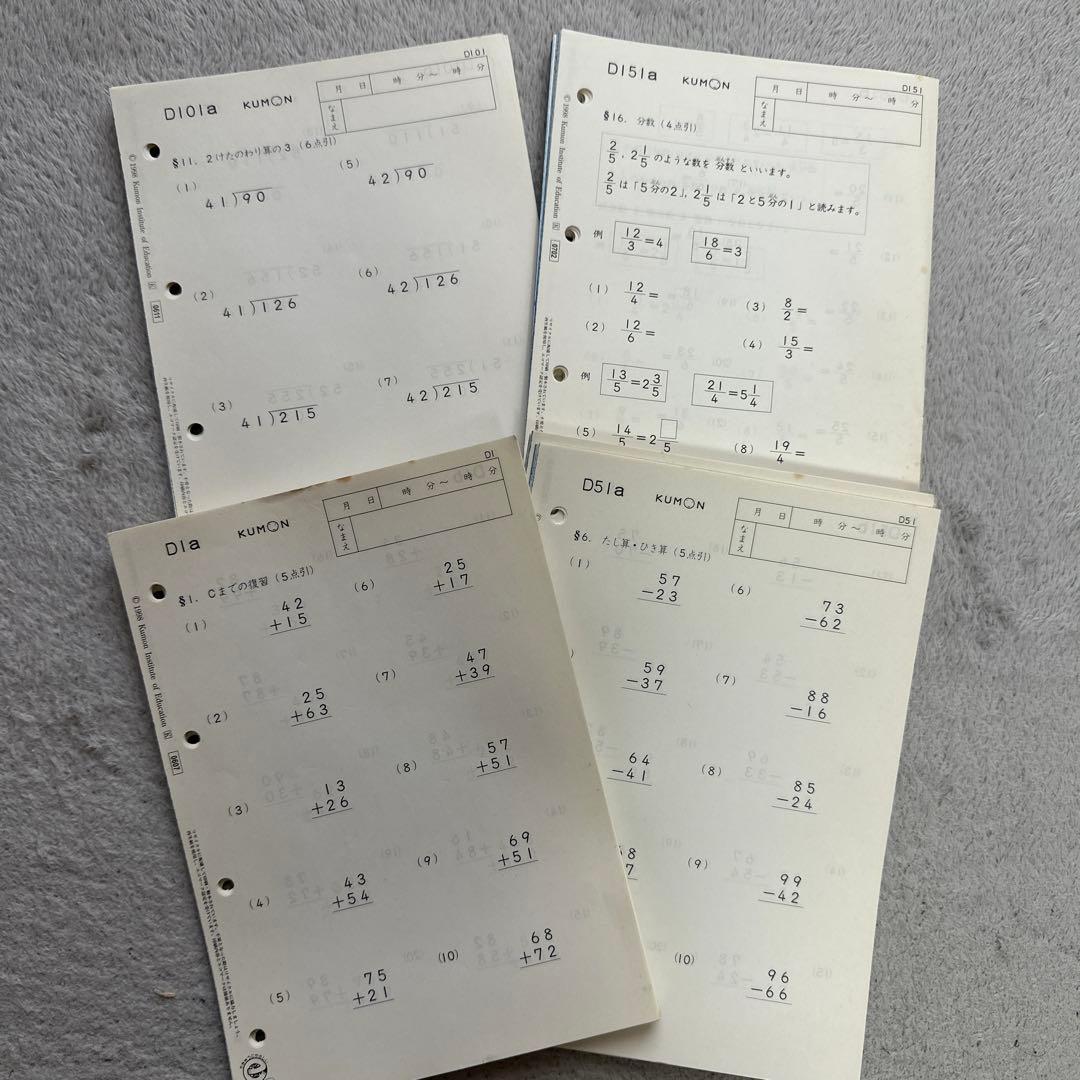 D101
D101a KUMON
月 日 時 分〜 時 分
なまえ
§11. 2けたのわり算の3 (6点引)
(1) 41)90
(5) 42)90
(2) 41)126
(6) 42)126
(3) 41)215
(7) 42)215
© 1998 Kumon Institute of Education K 0611
D151
D151a KUMON
月 日 時 分〜 時 分
なまえ
§16. 分数 (4点引)
2/5, 2 1/5 のような数を 分数 といいます。
2/5 は「5分の2」, 2 1/5 は「2と5分の1」と読みます。
例 12/3=4 18/6=3
(1) 12/4=
(3) 8/2=
(2) 12/6=
(4) 15/3=
例 13/5=2 3/5 21/4=5 1/4
(5) 14/5=2 □/5
(8) 19/4=
© 1998 Kumon Institute of Education K 0702
D1
D1a KUMON
月 日 時 分〜 時 分
なまえ
§1. Cまでの復習 (5点引)
(1) 42 +15
(6) 25 +17
(2) 25 +63
(7) 47 +39
(3) 13 +26
(8) 57 +51
(4) 43 +54
(9) 69 +51
(5) 75 +21
(10) 68 +72
© 1998 Kumon Institute of Education K 0607
D51
D51a KUMON
月 日 時 分〜 時 分
なまえ
§6. たし算・ひき算 (5点引)
(1) 57 −23
(6) 73 −62
59 −37
(7) 88 −16
64 −41
(8) 85 −24
8
7
(9) 99 −42
(10) 96 −66